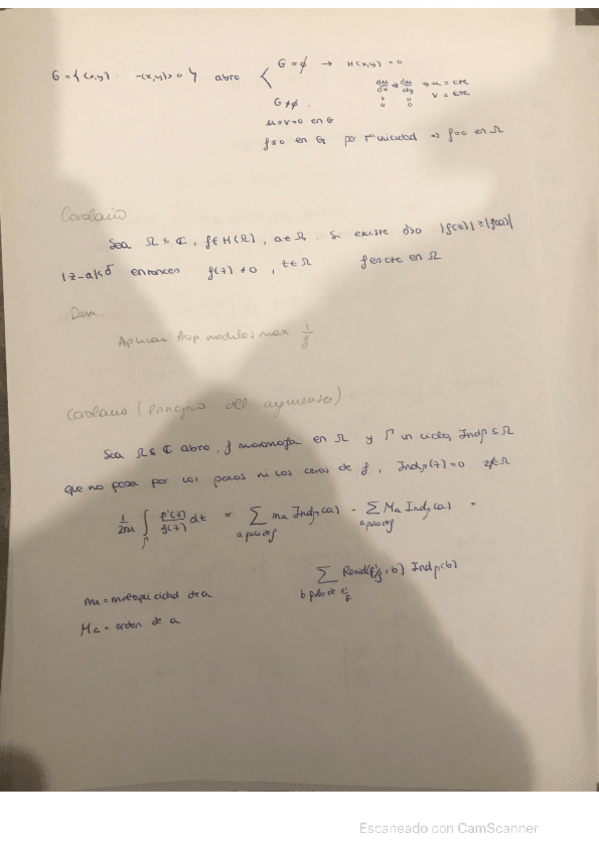 G = { (x,y) : -(x,y)>0 } abto
G = ∅ → H(x,y) = 0
du/dx = du/dy → u = cte
0 0 v = cte
G ≠ ∅.
u=v=0 en G
f=0 en G por unicidad ⇒ f=0 en Ω
Corolario
Sea Ω ⊆ ℂ, f ∈ H(Ω), a ∈ Ω. Si existe δ>0 |f(z)| ≥ |f(a)|
|z-a|<δ entonces f(z) ≠ 0, z ∈ Ω f es cte en Ω
Dem
Aplicar Prop modulos max 1/f
Corolario (Principio del argumento)
Sea Ω ⊆ ℂ abto, f meromorfa en Ω y Γ un ciclo, Ind Γ ⊆ Ω
que no pasa por los polos ni los ceros de f, Ind Γ(z) = 0 z ∉ Ω
1/2πi ∫ f'(z)/f(z) dz = ∑ ma Ind Γ(a) - ∑ Ma Ind Γ(a) =
Γ a polo de f a polo de f
∑ Resid(f'/f, b) Ind Γ(b)
b polo de f'/f
ma = multiplicidad de a
Ma = orden de a
Escaneado con CamScanner